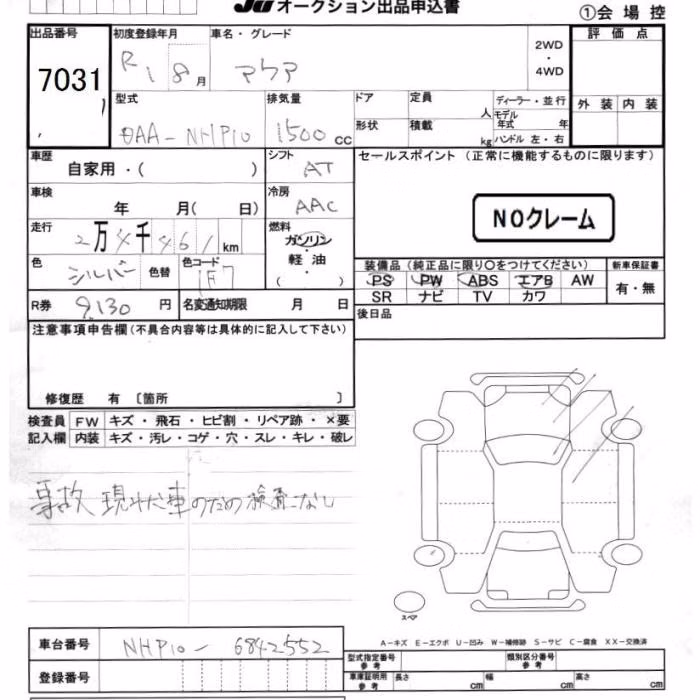 JU オークション出品申込書
①会 場 控
出品番号
7031
初度登録年月
R 1 8 月
車名・グレード
アクア
2WD
・
4WD
評 価 点
外 装 内 装
型式
DAA-NHP10
排気量
1500 cc
ドア
定員
人
形状
積載
kg
ディーラー・並行
モデル年式 年
ハンドル 左・右
車歴
自家用・( )
シフト
AT
セールスポイント (正常に機能するものに限ります)
NOクレーム
車検
年 月( 日)
冷房
AAC
走行
2万4千461km
燃料
ガソリン
・
軽 油
( )
色
シルバー
色替
色コード
1F7
装備品 (純正品に限り○をつけてください)
PS PW ABS エアB AW
SR ナビ TV カワ
新車保証書
有・無
R券
9,130 円
名変通知期限 月 日
後日品
注意事項申告欄(不具合内容等は具体的に記入して下さい)
修復歴 有 〔箇所 〕
検査員記入欄
FW キズ ・ 飛石 ・ ヒビ割 ・ リペア跡 ・ ×要
内装 キズ・汚レ・コゲ・穴・スレ・キレ・破レ
事故 現状車のため検査なし
スペア
A-キズ E-エクボ U-凹み W-補修跡 S-サビ C-腐食 XX-交換済
車台番号
NHP10-6842552
登録番号
型式指定番号 参考
類別区分番号 参考
車庫証明用 参考
長さ cm
幅 cm
高さ cm